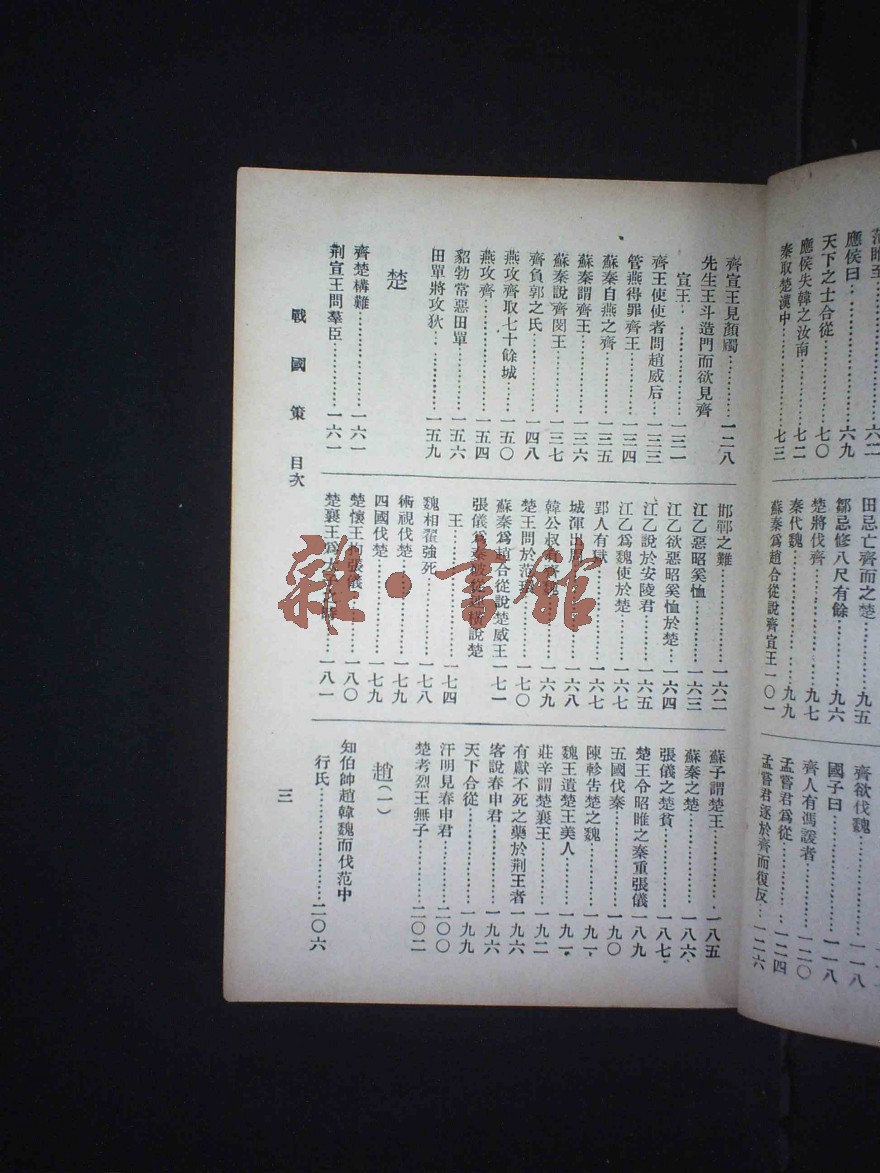 應侯曰……六九
天下之士合從……七〇
應侯失韓之汝南……七二
秦取楚漢中……七三
田忌亡齊而之楚……九五
鄒忌修八尺有餘……九六
楚將伐齊……九七
秦代魏……九九
蘇秦爲趙合從說齊宣王一〇一
齊欲伐魏……一一八
國子曰……一一八
齊人有馮諼者……一二〇
孟嘗君爲從……一二四
孟嘗君逐於齊而復反……一二六
齊宣王見顏斶……一二八
先生王斗造門而欲見齊
宣王……一三一
齊王使使者問趙威后……一三三
管燕得罪齊王……一三四
蘇秦自燕之齊……一三五
蘇秦謂齊王……一三六
蘇秦說齊閔王……一三七
齊負郭之民……一四八
燕攻齊取七十餘城……一五〇
燕攻齊……一五四
貂勃常惡田單……一五六
田單將攻狄……一五九
楚
齊楚構難……一六一
荆宣王問羣臣……一六一
邯鄲之難……一六二
江乙惡昭奚恤……一六三
江乙欲惡昭奚恤於楚……一六四
江乙說於安陵君……一六五
江乙爲魏使於楚……一六七
郢人有獄……一六七
城渾出周……一六八
韓公叔有齊魏……一六九
楚王問於范環……一七〇
蘇秦爲趙合從說楚威王一七一
張儀爲秦破從連橫說楚
王……一七四
魏相翟強死……一七八
術視伐楚……一七九
四國伐楚……一七九
楚懷王拘張儀……一八〇
楚襄王爲太子之時……一八一
蘇子謂楚王……一八五
蘇秦之楚……一八六
張儀之楚貧……一八七
楚王令昭睢之秦重張儀一八九
五國伐秦……一九〇
陳軫告楚之魏……一九一
魏王遺楚王美人……一九一
莊辛謂楚襄王……一九二
有獻不死之藥於荆王者一九六
客說春申君……一九六
天下合從……一九九
汗明見春申君……二〇〇
楚考烈王無子……二〇二
趙(一)
知伯帥趙韓魏而伐范中
行氏……二〇六
戰國策 目次
三
雜·書館